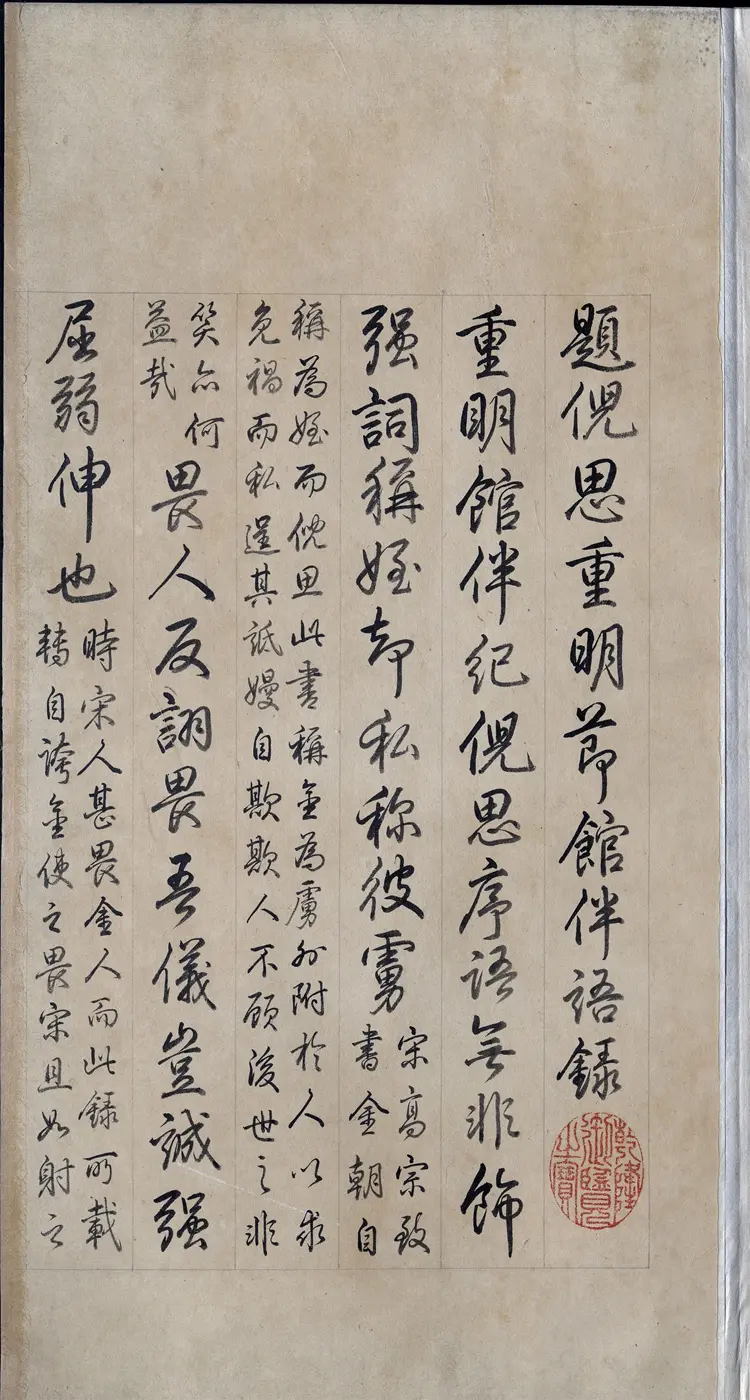 題倪思重明節館伴語錄
重明館伴紀倪思序語無非飾
强詞稱姪却私称彼虜宋高宗致
書金朝自
稱為姪而倪思此書稱金為虜外附於人以求
免禍而私逞其詆嫚自欺欺人不顧後世之非
笑亦何
益哉畏人反詡畏吾儀豈誠强
屈弱伸也時宋人甚畏金人而此錄所載
轉自誇金使之畏宋且如射之
乾隆御覽之寶